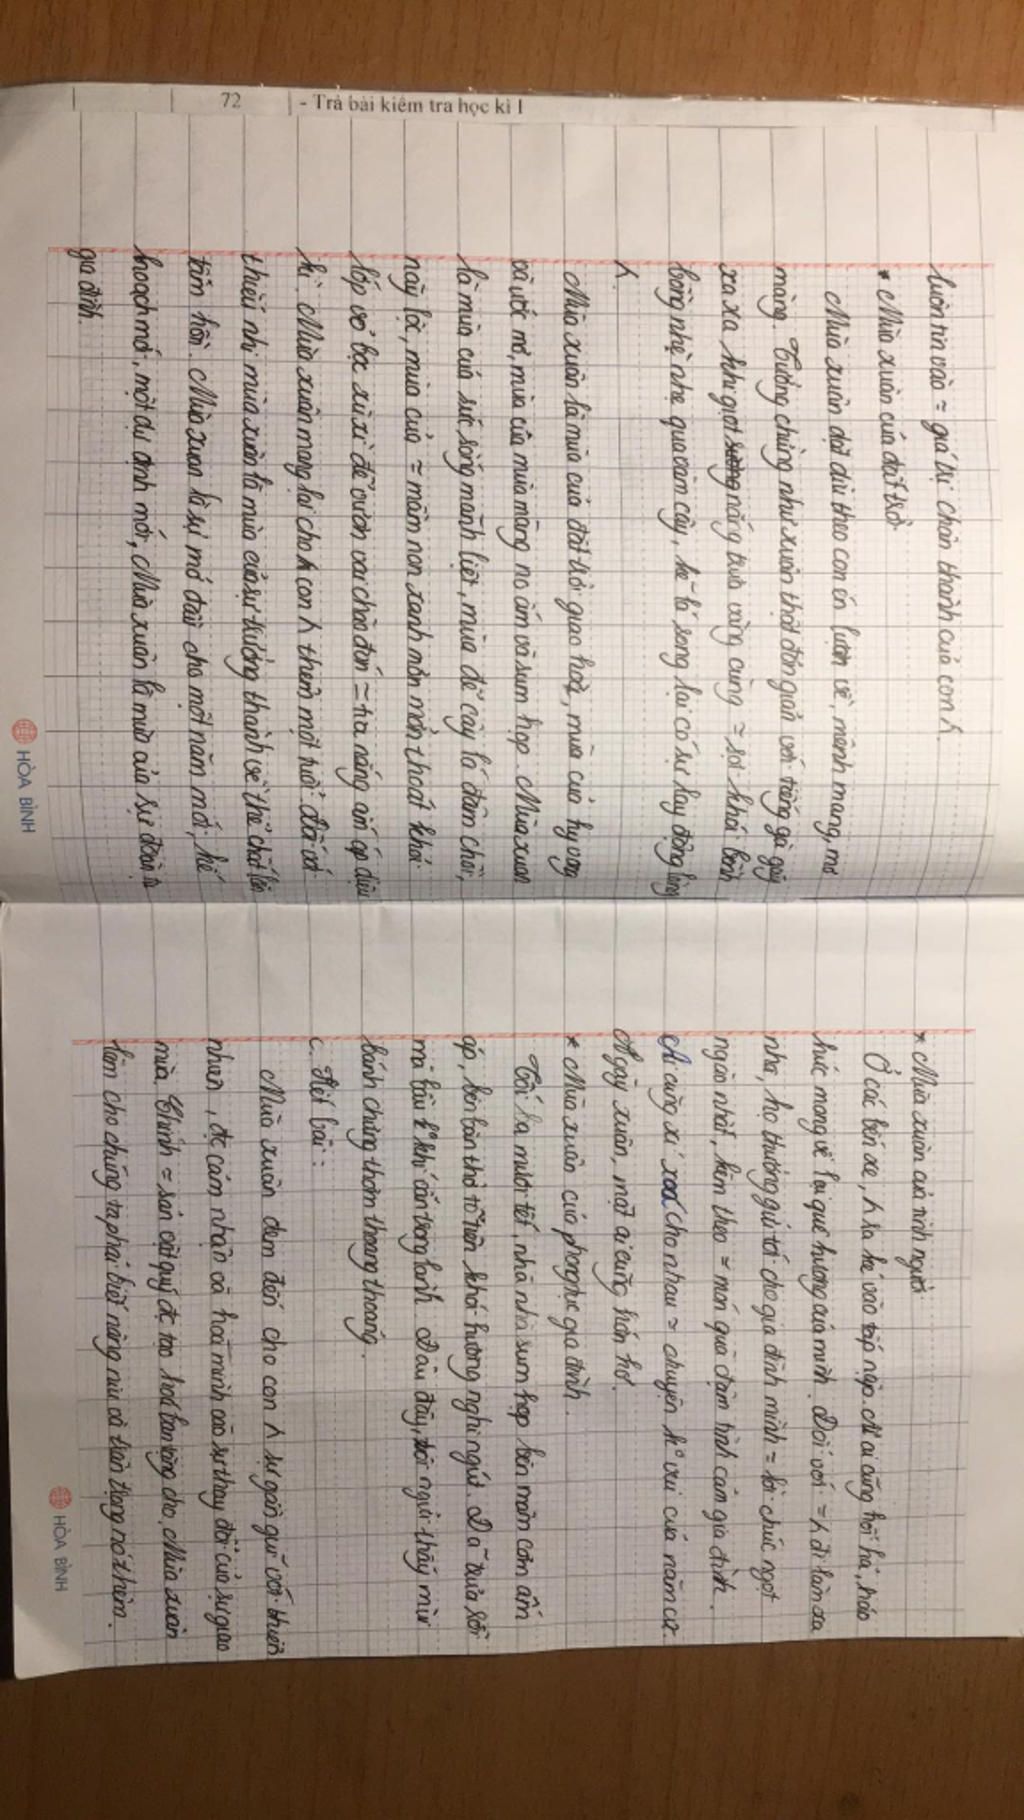 72 - Trả bài kiểm tra học kì I
luôn tin vào = giá trị chân thành của con h.
* Mùa xuân của đất trời
Mùa xuân dạt dìu theo con én lượn về, mênh mang, mơ
màng. Tưởng chừng như xuân thật đơn giản với tiếng gà gáy
xa xa khi giọt sương nắng trưa vàng cùng = sợi khói bếp
bỗng nhè nhẹ qua vòm cây, kẽ lá song lại có sự lay động lòng
h.
Mùa xuân là mùa của đất trời giao hoà, mùa của hy vọng
và ước mơ, mùa của mùa màng no ấm và sum họp. Mùa xuân
là mùa của sức sống mãnh liệt, mùa để cây lá đâm chồi,
nảy lộc, mùa của = mầm non xanh mơn mởn thoát khỏi
lớp vỏ bọc xù xì để vươn vai chào đón = tia nắng ấm áp diệu
kì. Mùa xuân mang lại cho h con h thêm một tuổi. Đối với
thiếu nhi mùa xuân là mùa của sự trưởng thành về thể chất lẫn
tâm hồn. Mùa xuân là sự mở đầu cho một năm mới, kế
hoạch mới, một dự định mới, Mùa xuân là mùa của sự đoàn tụ
gia đình.
HÒA BÌNH
* Mùa xuân của tình người
Ở các bến xe, h ra kẻ vào tấp nập. Ai ai cũng hối hả, háo
hức mong về lại quê hương của mình. Đối với = h đi làm xa
nhà, họ thường gửi tới cho gia đình mình = lời chúc ngọt
ngào nhất, kèm theo = món quà đậm tình cảm gia đình.
Ai cũng xí xoá cho nhau = chuyện k° vui của năm cũ.
Ngày xuân, mặt ai cũng hớn hở.
* Mùa xuân của phong tục gia đình.
Tối ba mươi tết, nhà nhà sum họp bên mâm cơm ấm
áp, bên bàn thờ tổ tiên khói hương nghi ngút. Dã trưa sôi
mà bầu k° khí vẫn trong lành. Đâu đây, người thấy mùi
bánh chưng thơm thoang thoảng.
C. Kết bài:
Mùa xuân đem đến cho con h sự gần gũi với thiên
nhiên, đc cảm nhận và hoà mình vào sự thay đổi của sự giao
mùa. Chính = sản vật quý đc tạo hoá ban tặng cho Mùa xuân
làm cho chúng ta phải biết nâng niu và trân trọng nó thêm.
HÒA BÌNH